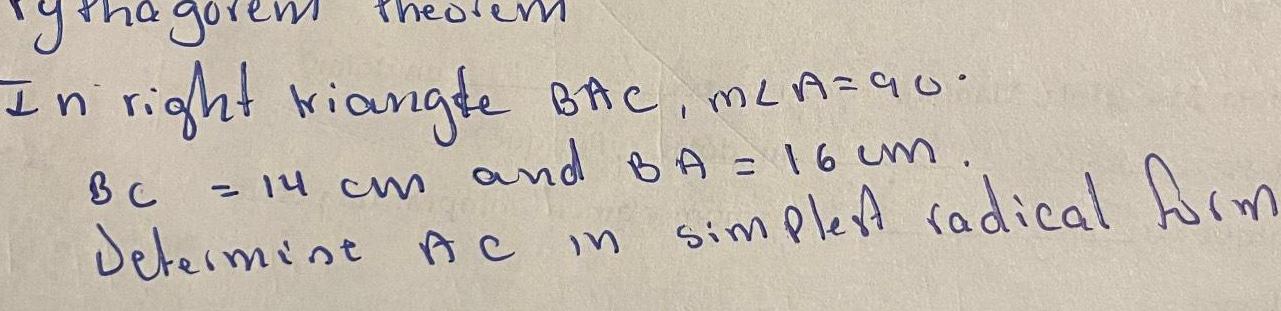 Pythagorem theorem
In right triangle BAC, m∠A=90°
BC = 14 cm and BA = 16 cm.
Determine AC in simplest radical form